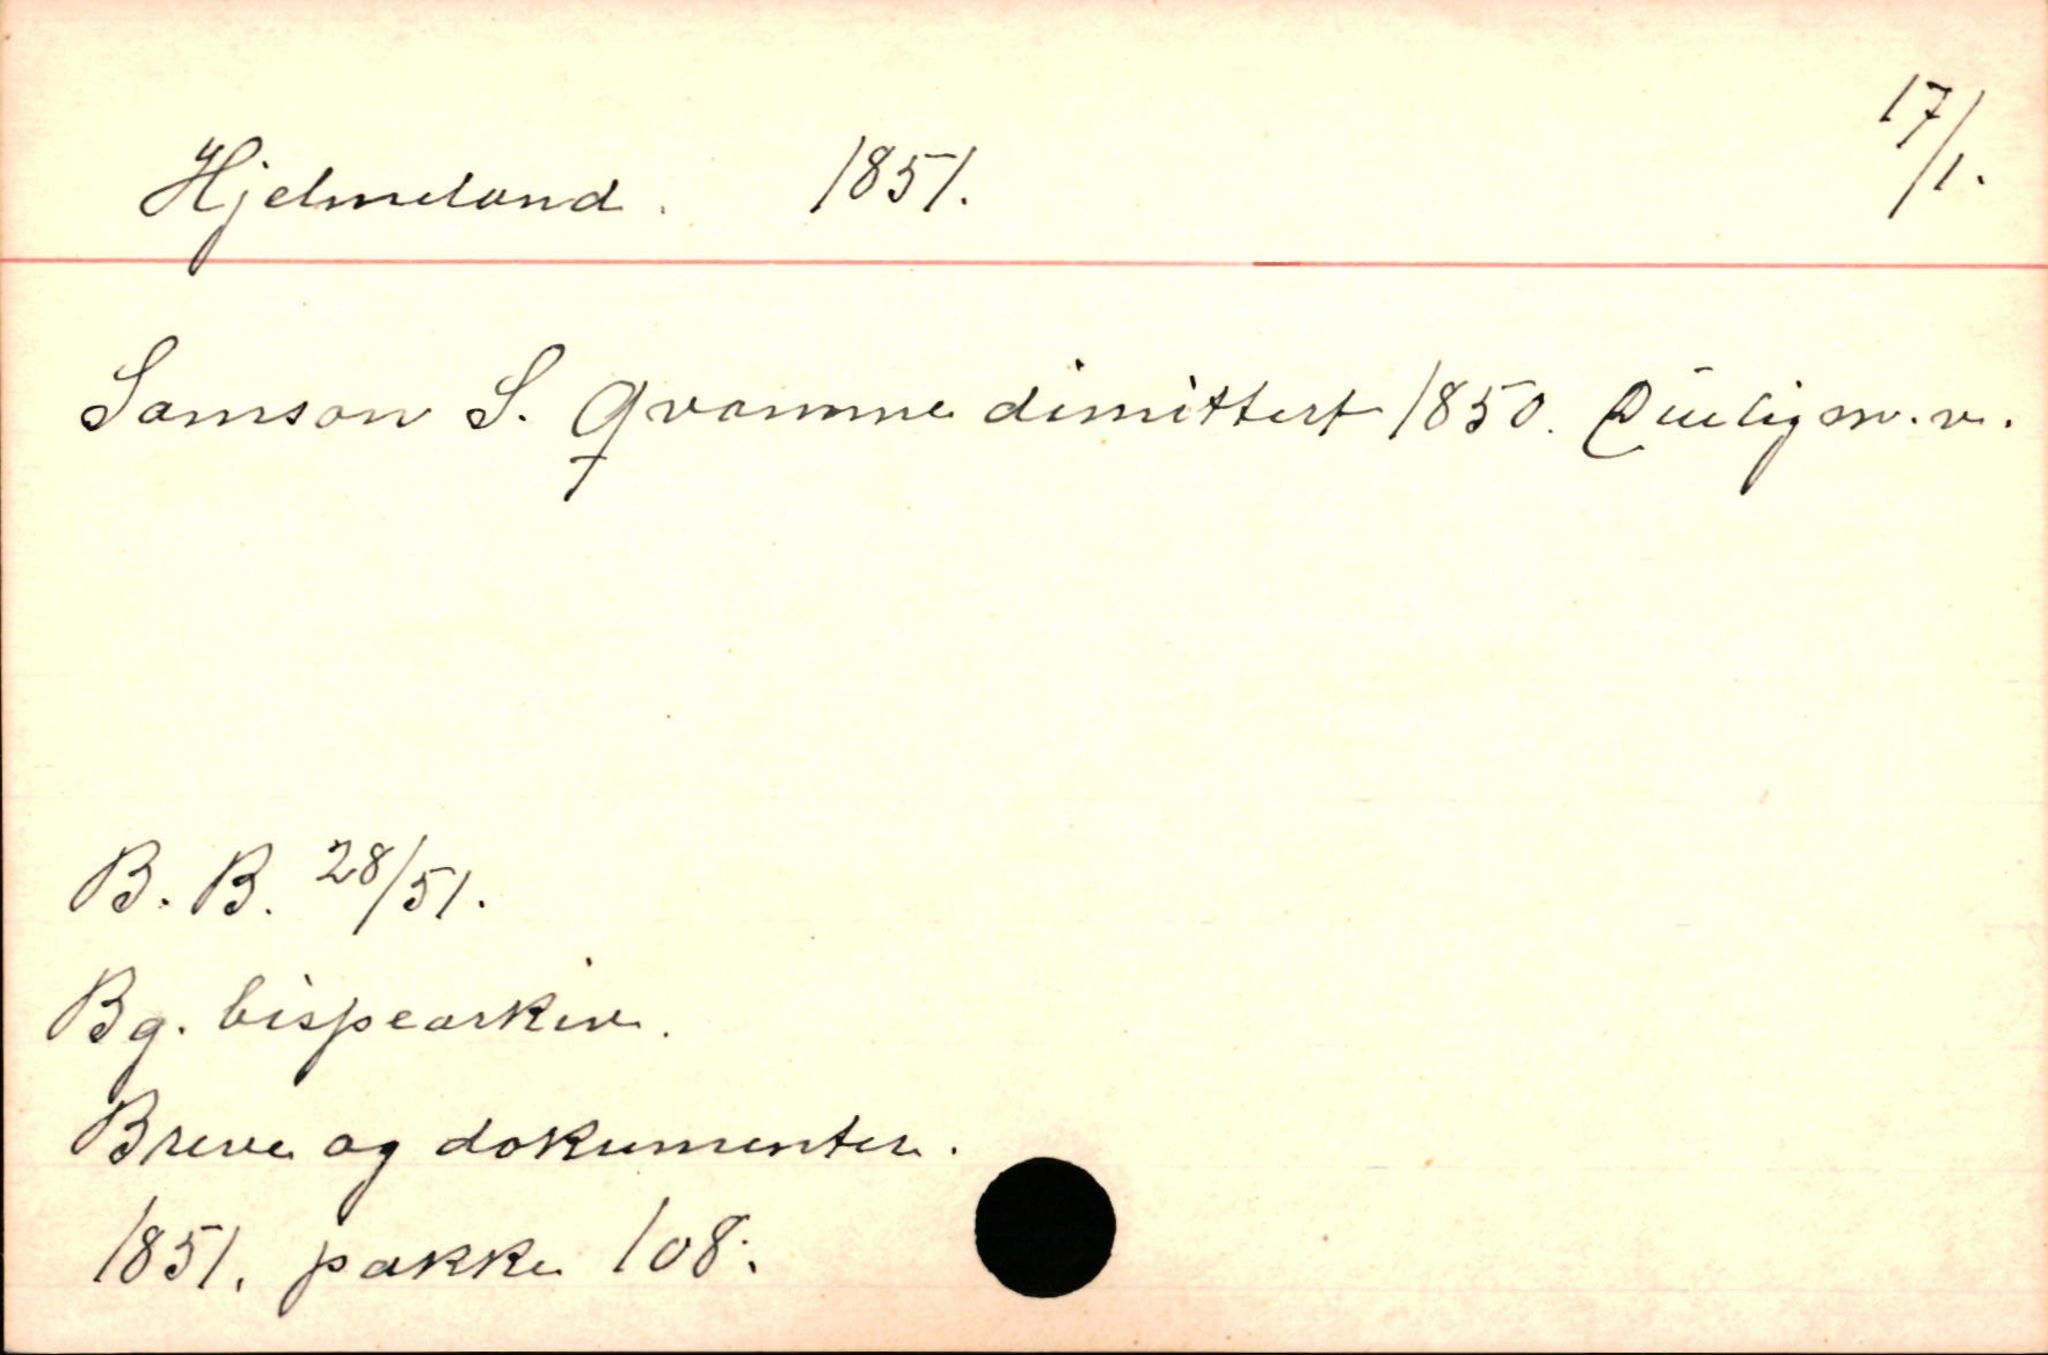 Hjelmeland. 1851. 17/1.
Samson S. Qvamme dimittert 1850. Duelig m. v.
B. B. 28/51.
Bg. bispearkiv.
Breve og dokumenter.
1851. pakke 108.